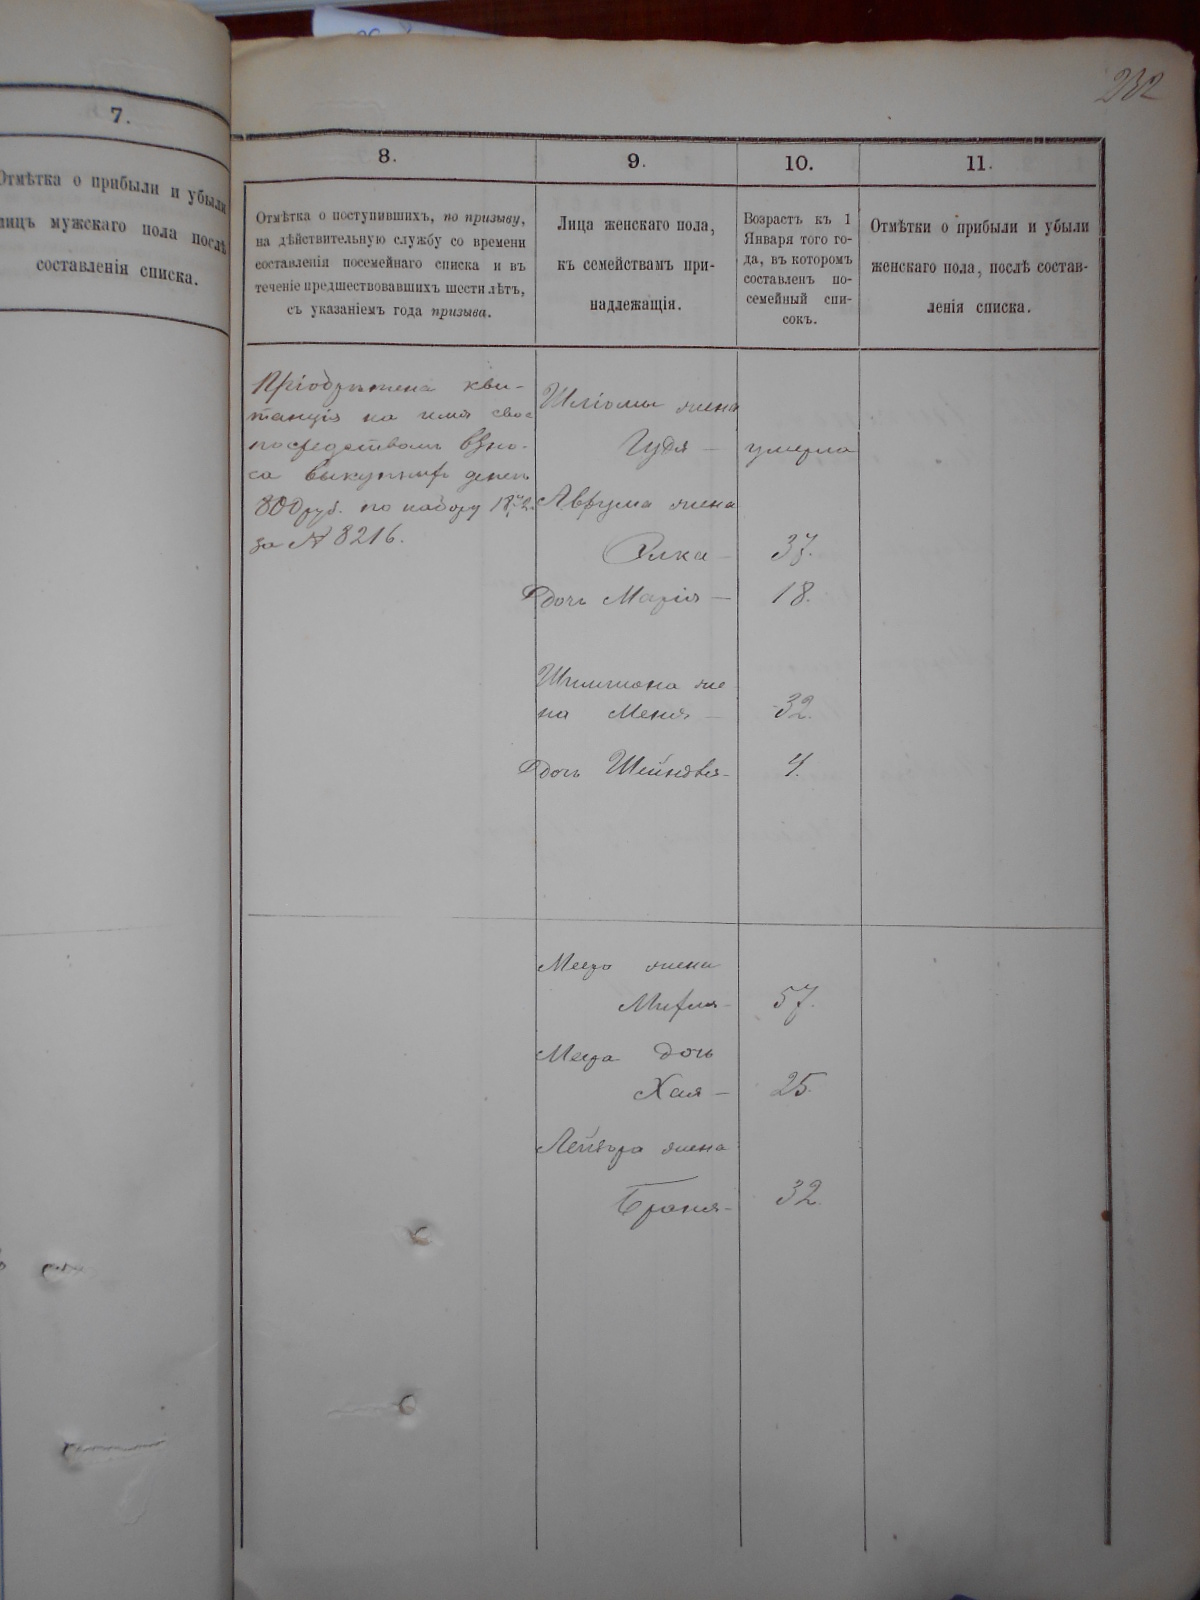 232
7.
Отмѣтка о прибыли и убыли
лицъ мужскаго пола послѣ
составленія списка.
8.
Отмѣтка о поступившихъ, по призыву,
на дѣйствительную службу со времени
составленія посемейнаго списка и въ
теченіе предшествовавшихъ шести лѣтъ,
съ указаніемъ года призыва.
9.
Лица женскаго пола,
къ семействамъ при-
надлежащія.
10.
Возрастъ къ 1
Января того го-
да, въ которомъ
составленъ по-
семейный спи-
сокъ.
11.
Отмѣтки о прибыли и убыли
женскаго пола, послѣ состав-
ленія списка.
кви-
танція на имя свое
посредствомъ взно-
са выкупныхъ денегъ
800 руб. по набору
за № 8216.
Шліомы жена
Гудя — умерла
Аврума жена
Элка — 37.
дочь Марія — 18.
Шлиомона же-
на Меня — 32.
дочь — 4.
жена
57.
дочь
Хая — 25.
жена
Браня — 32.